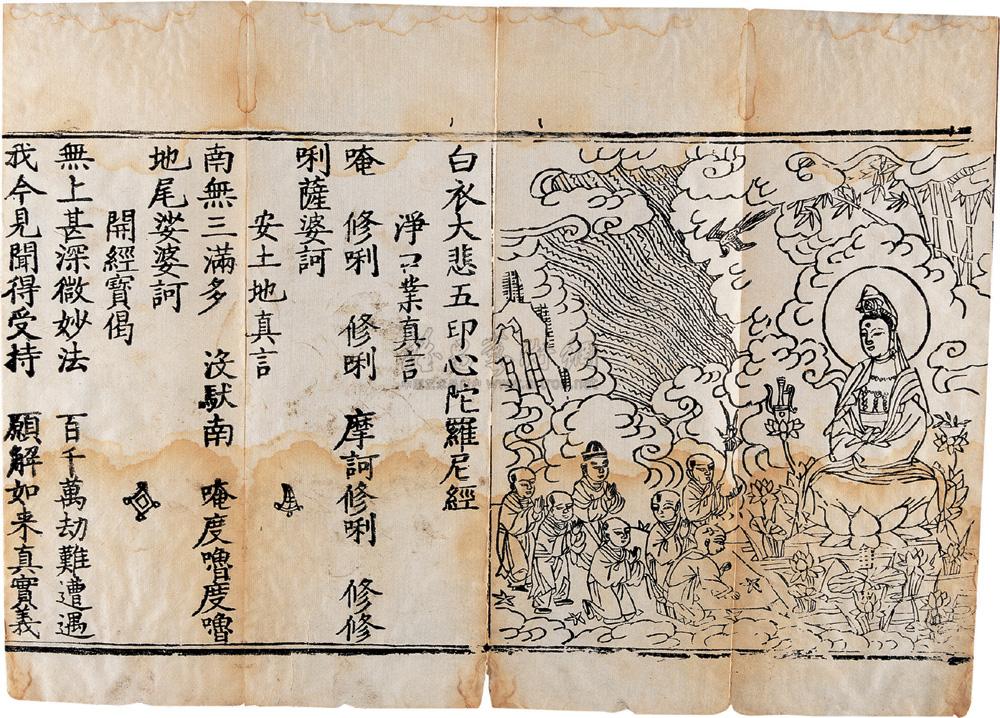 白衣大悲五印心陀羅尼經
淨口業真言
唵 修唎 修唎 摩訶修唎 修修
唎薩婆訶
安土地真言
南無三滿多 沒馱南 唵度嚕度嚕
地尾娑婆訶
開經寶偈
無上甚深微妙法 百千萬劫難遭遇
我今見聞得受持 願解如来真實義